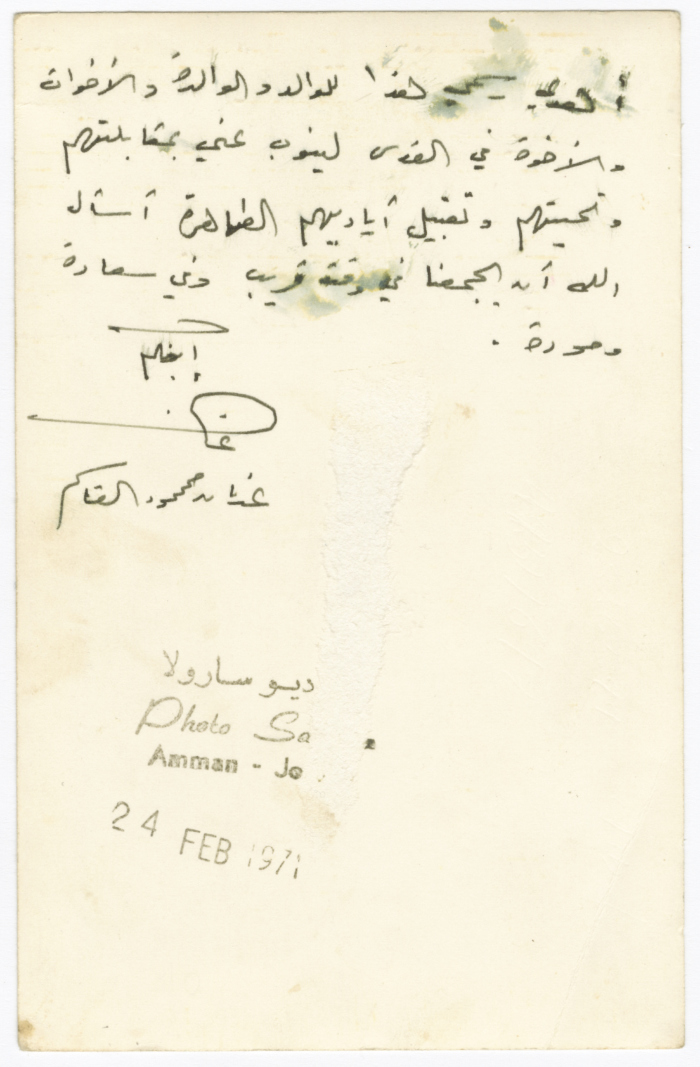 أهدي رسمي هذا للوالد والوالدة والأخوات
والأخوة في القدس لينوب عني بمقابلتهم
وتحيتهم وتقبيل أياديهم الطاهرة أسأل
الله أن يجمعنا في وقت قريب وفي سعادة
ومودة .
إبنكم
عدنان محمود القاسم
ديو سارولا
Photo Sa
Amman - Jo
24 FEB 1971